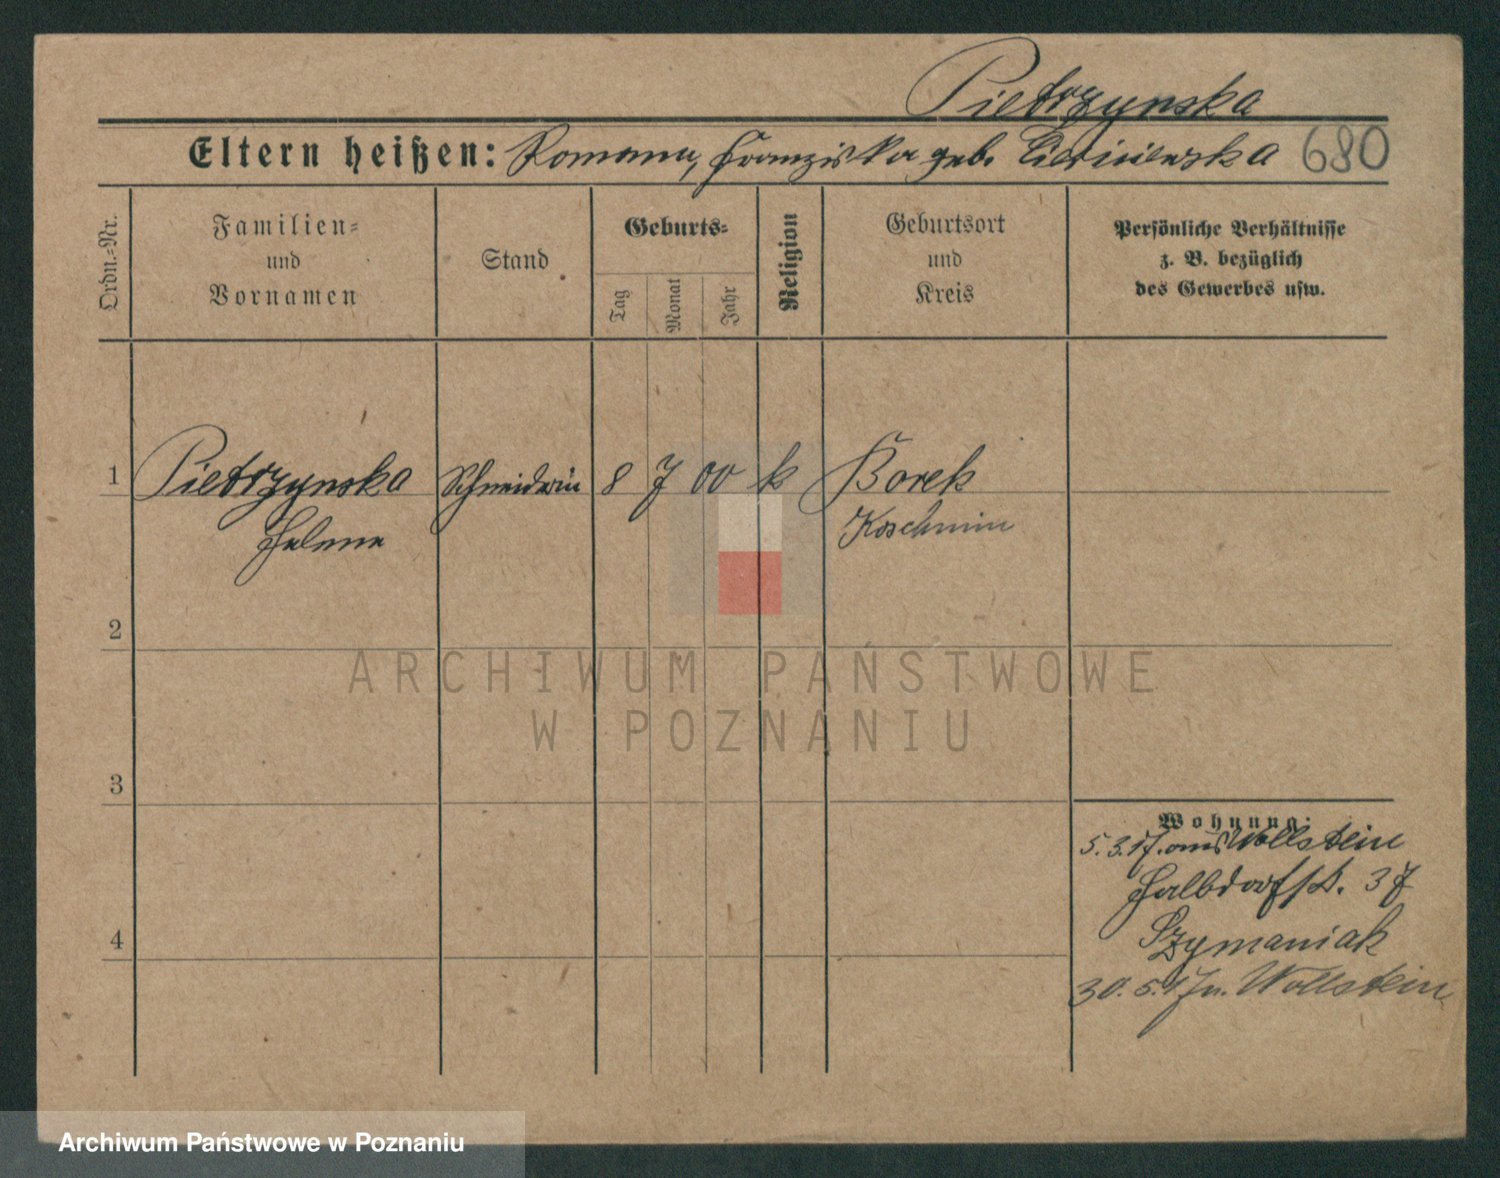 Pietrzynska
Eltern heißen: Romann, Franziska geb. 680
Ordn.-Nr.
Familien-
und
Vornamen
Stand
Geburts-
Tag
Monat
Jahr
Religion
Geburtsort
und
Kreis
Persönliche Verhältnisse
z. B. bezüglich
des Gewerbes usw.
1 Pietrzynska Schneiderin 8 7 00 k Borek
Helene Koschmin
2
ARCHIWUM PAŃSTWOWE
W POZNANIU
3
Wohnung:
5.3.17. aus Wollstein
Halbdorfst. 37
4
Szymaniak
30.5.17 n. Wollstein
Archiwum Państwowe w Poznaniu